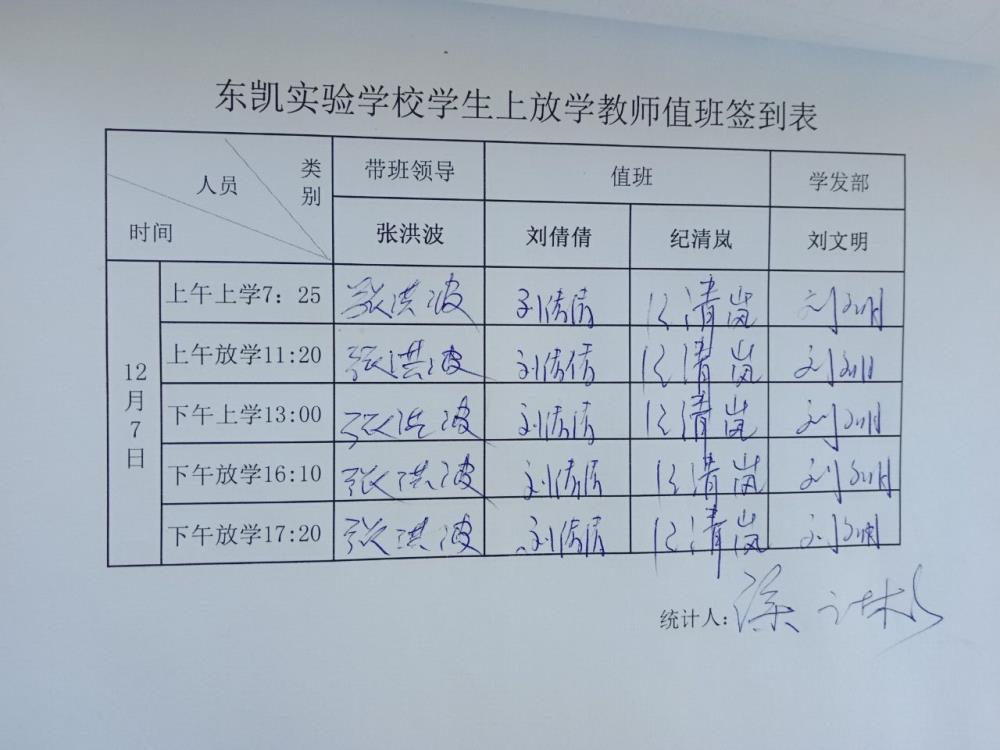 东凯实验学校学生上放学教师值班签到表
类别 人员 时间 带班领导 值班 学发部
张洪波 刘倩倩 纪清岚 刘文明
12月7日
上午上学7：25 张洪波 刘倩倩 纪清岚 刘文明
上午放学11:20 张洪波 刘倩倩 纪清岚 刘文明
下午上学13:00 张洪波 刘倩倩 纪清岚 刘文明
下午放学16:10 张洪波 刘倩倩 纪清岚 刘文明
下午放学17:20 张洪波 刘倩倩 纪清岚 刘文明
统计人：